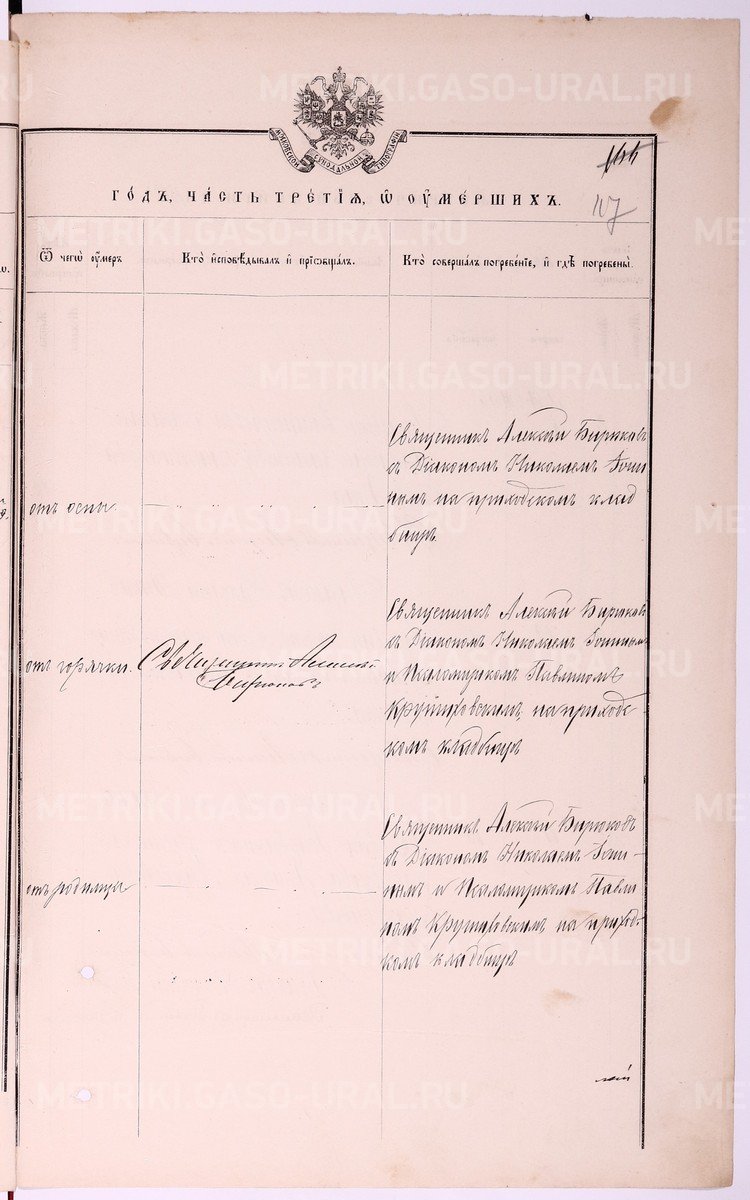 МОСКОВСКОЙ
СѴНОДАЛЬНОЙ
ТИПОГРАФІИ
107
ГО́ДЪ, ЧА́СТЬ ТРЕ́ТІѦ, Ѡ҆ ОУ҆МЕ́РШИХЪ.
Ѿ чегѡ̀ оу҆́меръ
Кто̀ и҆сповѣ́дывалъ и҆ прїѡбща́лъ.
Кто̀ соверша́лъ погребе́нїе, и҆ гдѣ̀ погребены̀.
отъ оспы.
Священникъ Алексѣй Бирюковъ
съ Діакономъ Николаемъ Гони
нымъ на приходскомъ клад
бищѣ
отъ горячки.
Священникъ Алексѣй
Бирюковъ
Священникъ Алексѣй Бирюковъ
съ Діакономъ Николаемъ Гонинымъ
и Псаломщикомъ Павлиномъ
на приходс
комъ кладбищѣ
отъ родимца
Священникъ Алексѣй Бирюковъ
съ Діакономъ Николаемъ Гони-
нымъ и Псаломщикомъ Павли
номъ на приходс
комъ кладбищѣ
METRIKI.GASO-URAL.RU